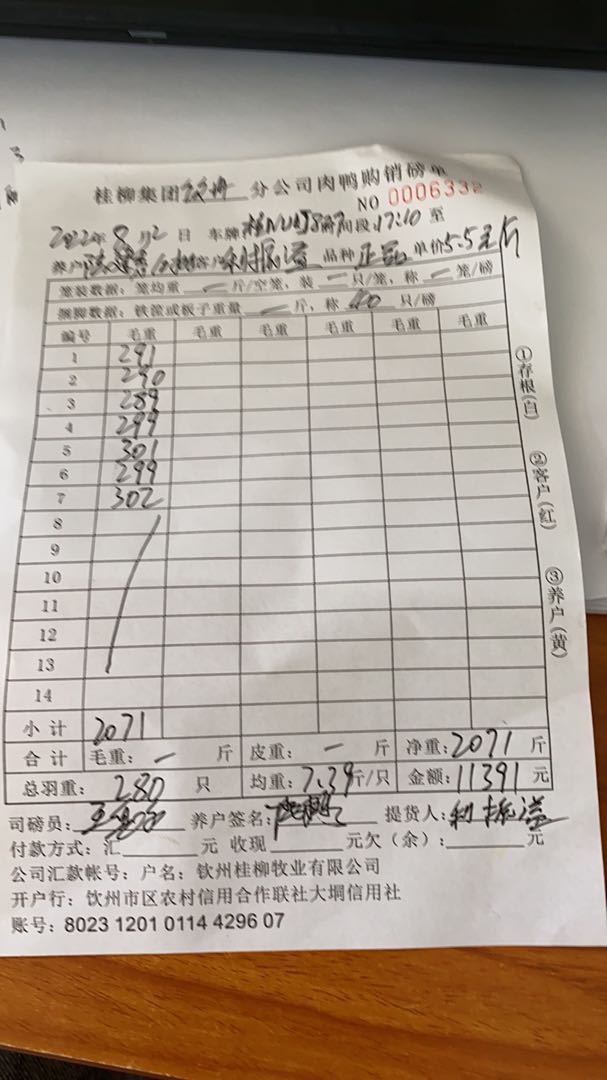 桂柳集团 分公司肉鸭购销磅单
NO 0006332
2022年8月2日 车牌 时间段17:10至
养户 客户利振溢 品种正品 单价5.5元/斤
笼装数据：笼均重 一 斤/空笼，装 一 只/笼，称 一 笼/磅
捆脚数据：铁筐或板子重量 一 斤，称 40 只/磅
编号 毛重 毛重 毛重 毛重 毛重 毛重
1 291
2 290
3 289
4 299
5 301
6 299
7 302
8
9
10
11
12
13
14
小计 2071
合计 毛重：一 斤 皮重：一 斤 净重：2071斤
总羽重：280 只 均重：7.39斤/只 金额：11391元
司磅员： 养户签名： 提货人：利振溢
付款方式：汇 元 收现 元欠（余）： 元
公司汇款帐号：户名：钦州桂柳牧业有限公司
开户行：钦州市区农村信用合作联社大垌信用社
账号：8023 1201 0114 4296 07
①存根(白)
②客户(红)
③养户(黄)